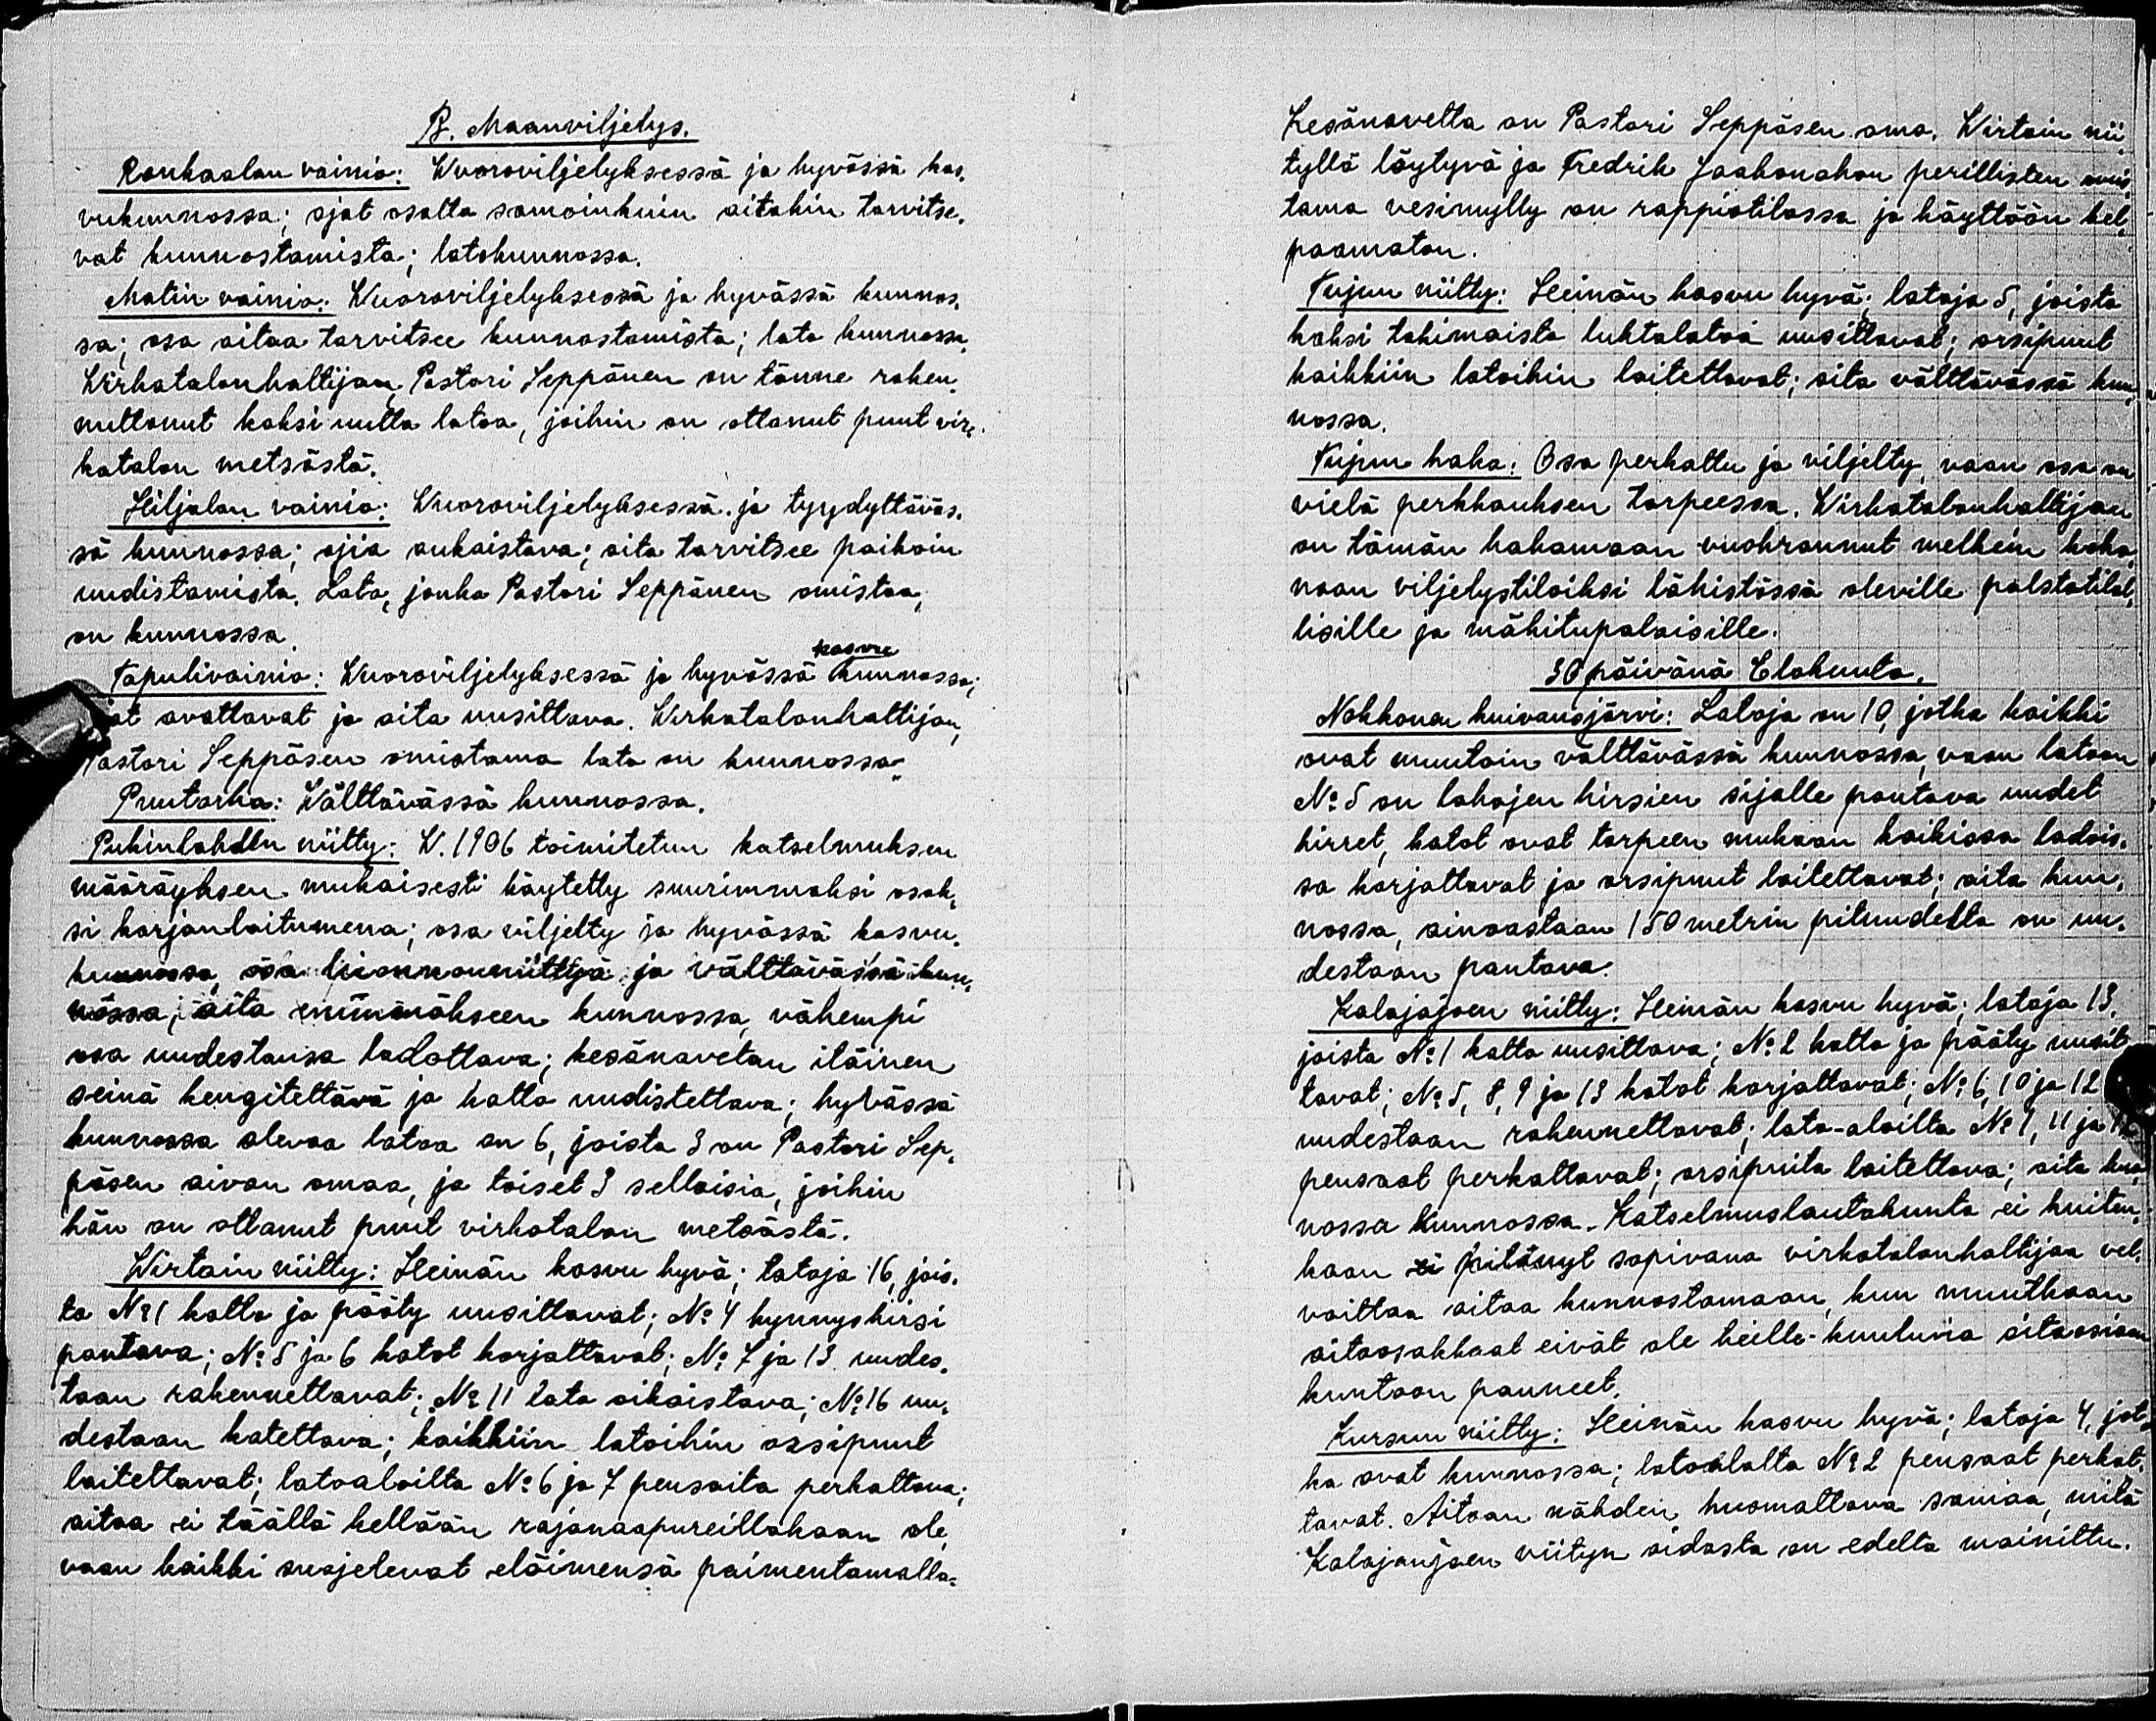 B. Maanviljelys.
Ronkaalan vainio: Wuoroviljelyksessä ja hyvässä kas-
vukunnossa; ojat osalta samoinkuin aitakin tarvitse-
vat kunnostamista; lato kunnossa.
Matin vainio: Wuoroviljelyksessä ja hyvässä kunnos-
sa; osa aitaa tarvitsee kunnostamista; lato kunnossa.
Wirkatalonhaltijan, Pastori Seppänen on tänne raken-
nuttanut kaksi uutta latoa, joihin on ottanut puut vir-
katalon metsästä.
Hiljalan vainio: Wuoroviljelyksessä ja tyydyttäväs-
sä kunnossa; ojia aukaistava; aita tarvitsee paikoin
uudistamista. Lato, jonka Pastori Seppänen omistaa,
on kunnossa.
kasvu
Tapulivainio: Wuoroviljelyksessä ja hyvässä kunnossa;
jat avattavat ja aita uusittava. Wirkatalonhaltijan,
Pastori Seppäsen omistama lato on kunnossa.
Puutarha: Wälttävässä kunnossa.
Pukinlahden niitty: W. 1906 toimitetun katselmuksen
määräyksen mukaisesti käytetty suurimmaksi osak-
si karjanlaitumena; osa viljelty ja hyvässä kasvu-
kunnossa, osa luonnonniittyä ja välttävässä kun-
nossa; aita enimmäkseen kunnossa, vähempi
osa uudestansa ladottava; kesänavetan itäinen
seinä kengitettävä ja katto uudistettava; hyvässä
kunnossa olevaa latoa on 6, joista 3 on Pastori Sep-
päsen aivan omaa, ja toiset 3 sellaisia, joihin
hän on ottanut puut virkatalon metsästä.
Wirtain niitty: Heinän kasvu hyvä; latoja 16, jois-
ta No 1 katto ja pääty uusittavat; No 4 kynnyshirsi
pantava; No 5 ja 6 katot korjattavat; No 7 ja 13 uudes-
taan rakennettavat; No 11 lato oikaistava; No 16 uu-
destaan katettava; kaikkiin latoihin orsipuut
laitettavat; latoaloilta No 6 ja 7 pensaita perkattava;
aitaa ei täällä kellään rajanaapureillakaan ole,
vaan kaikki suojelevat eläimensä paimentamalla.
Kesänavetta on Pastori Seppäsen oma. Wirtain nii-
tyllä löytyvä ja Fredrik Jaakonahon perillisten omis-
tama vesimylly on rappiotilassa ja käyttöön kel-
paamaton.
Tujun niitty: Heinän kasvu hyvä; latoja 5, joista
kaksi takimaista luhtalatoa uusittavat; orsipuut
kaikkiin latoihin laitettavat; aita välttävässä kun-
nossa.
Tujun haka: Osa perkattu ja viljelty, vaan osa on
vielä perkkauksen tarpeessa. Wirkatalonhaltijan
on tämän hakamaan vuokrannut melkein koko-
naan viljelystiloiksi lähistössä oleville palstatilal-
lisille ja mäkitupalaisille.
30 päivänä Elokuuta.
Nokkonen kuivausjärvi: Latoja on 10, jotka kaikki
ovat muutoin välttävässä kunnossa, vaan latoon
No 5 on lahojen hirsien sijalle pantava uudet
hirret, katot ovat tarpeen mukaan kaikissa lados-
sa korjattavat ja orsipuut laitettavat; aita kun-
nossa, ainoastaan 150 metrin pituudelta on uu-
destaan pantava.
Kalajajoen niitty: Heinän kasvu hyvä; latoja 13,
joista No 1 katto uusittava; No 2 katto ja pääty uusit-
tavat; No 5, 8, 9 ja 13 katot korjattavat; No 6, 10 ja 12
uudestaan rakennettavat; lato-aloilta No 1, 11 ja
pensaat perkattavat; orsipuita laitettava; aita kun-
nossa kunnossa. Katselmuslautakunta ei kuiten-
kaan ei pitänyt sopivana virkatalonhaltijaa vel-
voittaa aitaa kunnostamaan, kun muutkaan
aitaosakkaat eivät ole heille kuuluvia aitaosiaan
kuntoon panneet.
Kursun niitty: Heinän kasvu hyvä; latoja 4, jot-
ka ovat kunnossa; latoalalta No 2 pensaat perkat-
tavat. Aitaan nähden huomattava samaa, mitä
Kalajanjoen niityn aidasta on edellä mainittu.